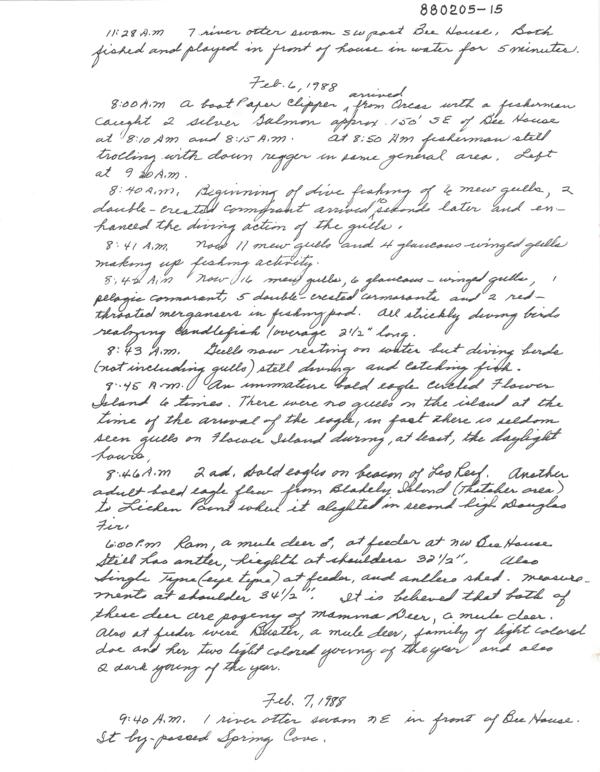 880205-15
11:28 A.M 7 river otter swam SW past Bee House. Both
fished and played in front of house in water for 5 minutes.
Feb. 6, 1988
8:00 A.M A boat Paper Clipper arrived from Orcas with a fisherman
caught 2 silver Salmon approx. 150' SE of Bee House
at 8:10 AM and 8:15 A.M. At 8:50 AM fisherman still
trolling with down rigger in same general area. Left
at 9 A.M.
8:40 A.M. Beginning of dive fishing of 6 mew gulls, 2
double-crested cormorant arrived seconds later and en-
hanced the diving action of the gulls.
8:41 A.M. Now 11 mew gulls and 4 glaucous-winged gulls
making up fishing activity.
8:42 A.M Now 16 mew gulls, 6 glaucous-winged gulls, 1
pelagic cormorant, 5 double-crested cormorants and 2 red-
throated mergansers in fishing pod. All strickly diving birds
realizing candlefish/average 2 1/2" long.
8:43 A.M. Gulls now resting on water but diving birds
(not including gulls) still diving and catching fish.
8:45 A.M. An immature bald eagle circled Flower
Island 6 times. There were no gulls on the island at the
time of the arrival of the eagle, in fact there is seldom
seen gulls on Flower Island during, at least, the daylight
hours.
8:46 A.M 2 ad. bald eagles on beacon of Leo Reef. Another
adult bald eagle flew from Blakely Island (Thatcher area)
to Lichen Point where it alighted in second high Douglas
Fir.
6:00 P.m Ram, a mule deer ♂, at feeder at NW Bee House
Still has antler, heighth at shoulders 32 1/2". Also
Single Tyne (eye tyne) at feeder, and antlers shed. measure-
ments at shoulder 34 1/2". It is believed that both of
these deer are pogeny of Mamma Deer, a mule deer.
Also at feeder were Buster, a mule deer, family of light colored
doe and her two light colored young of the year and also
2 dark young of the year.
Feb. 7, 1988
9:40 A.M. 1 river otter swam NE in front of Bee House.
It by-passed Spring Cove.